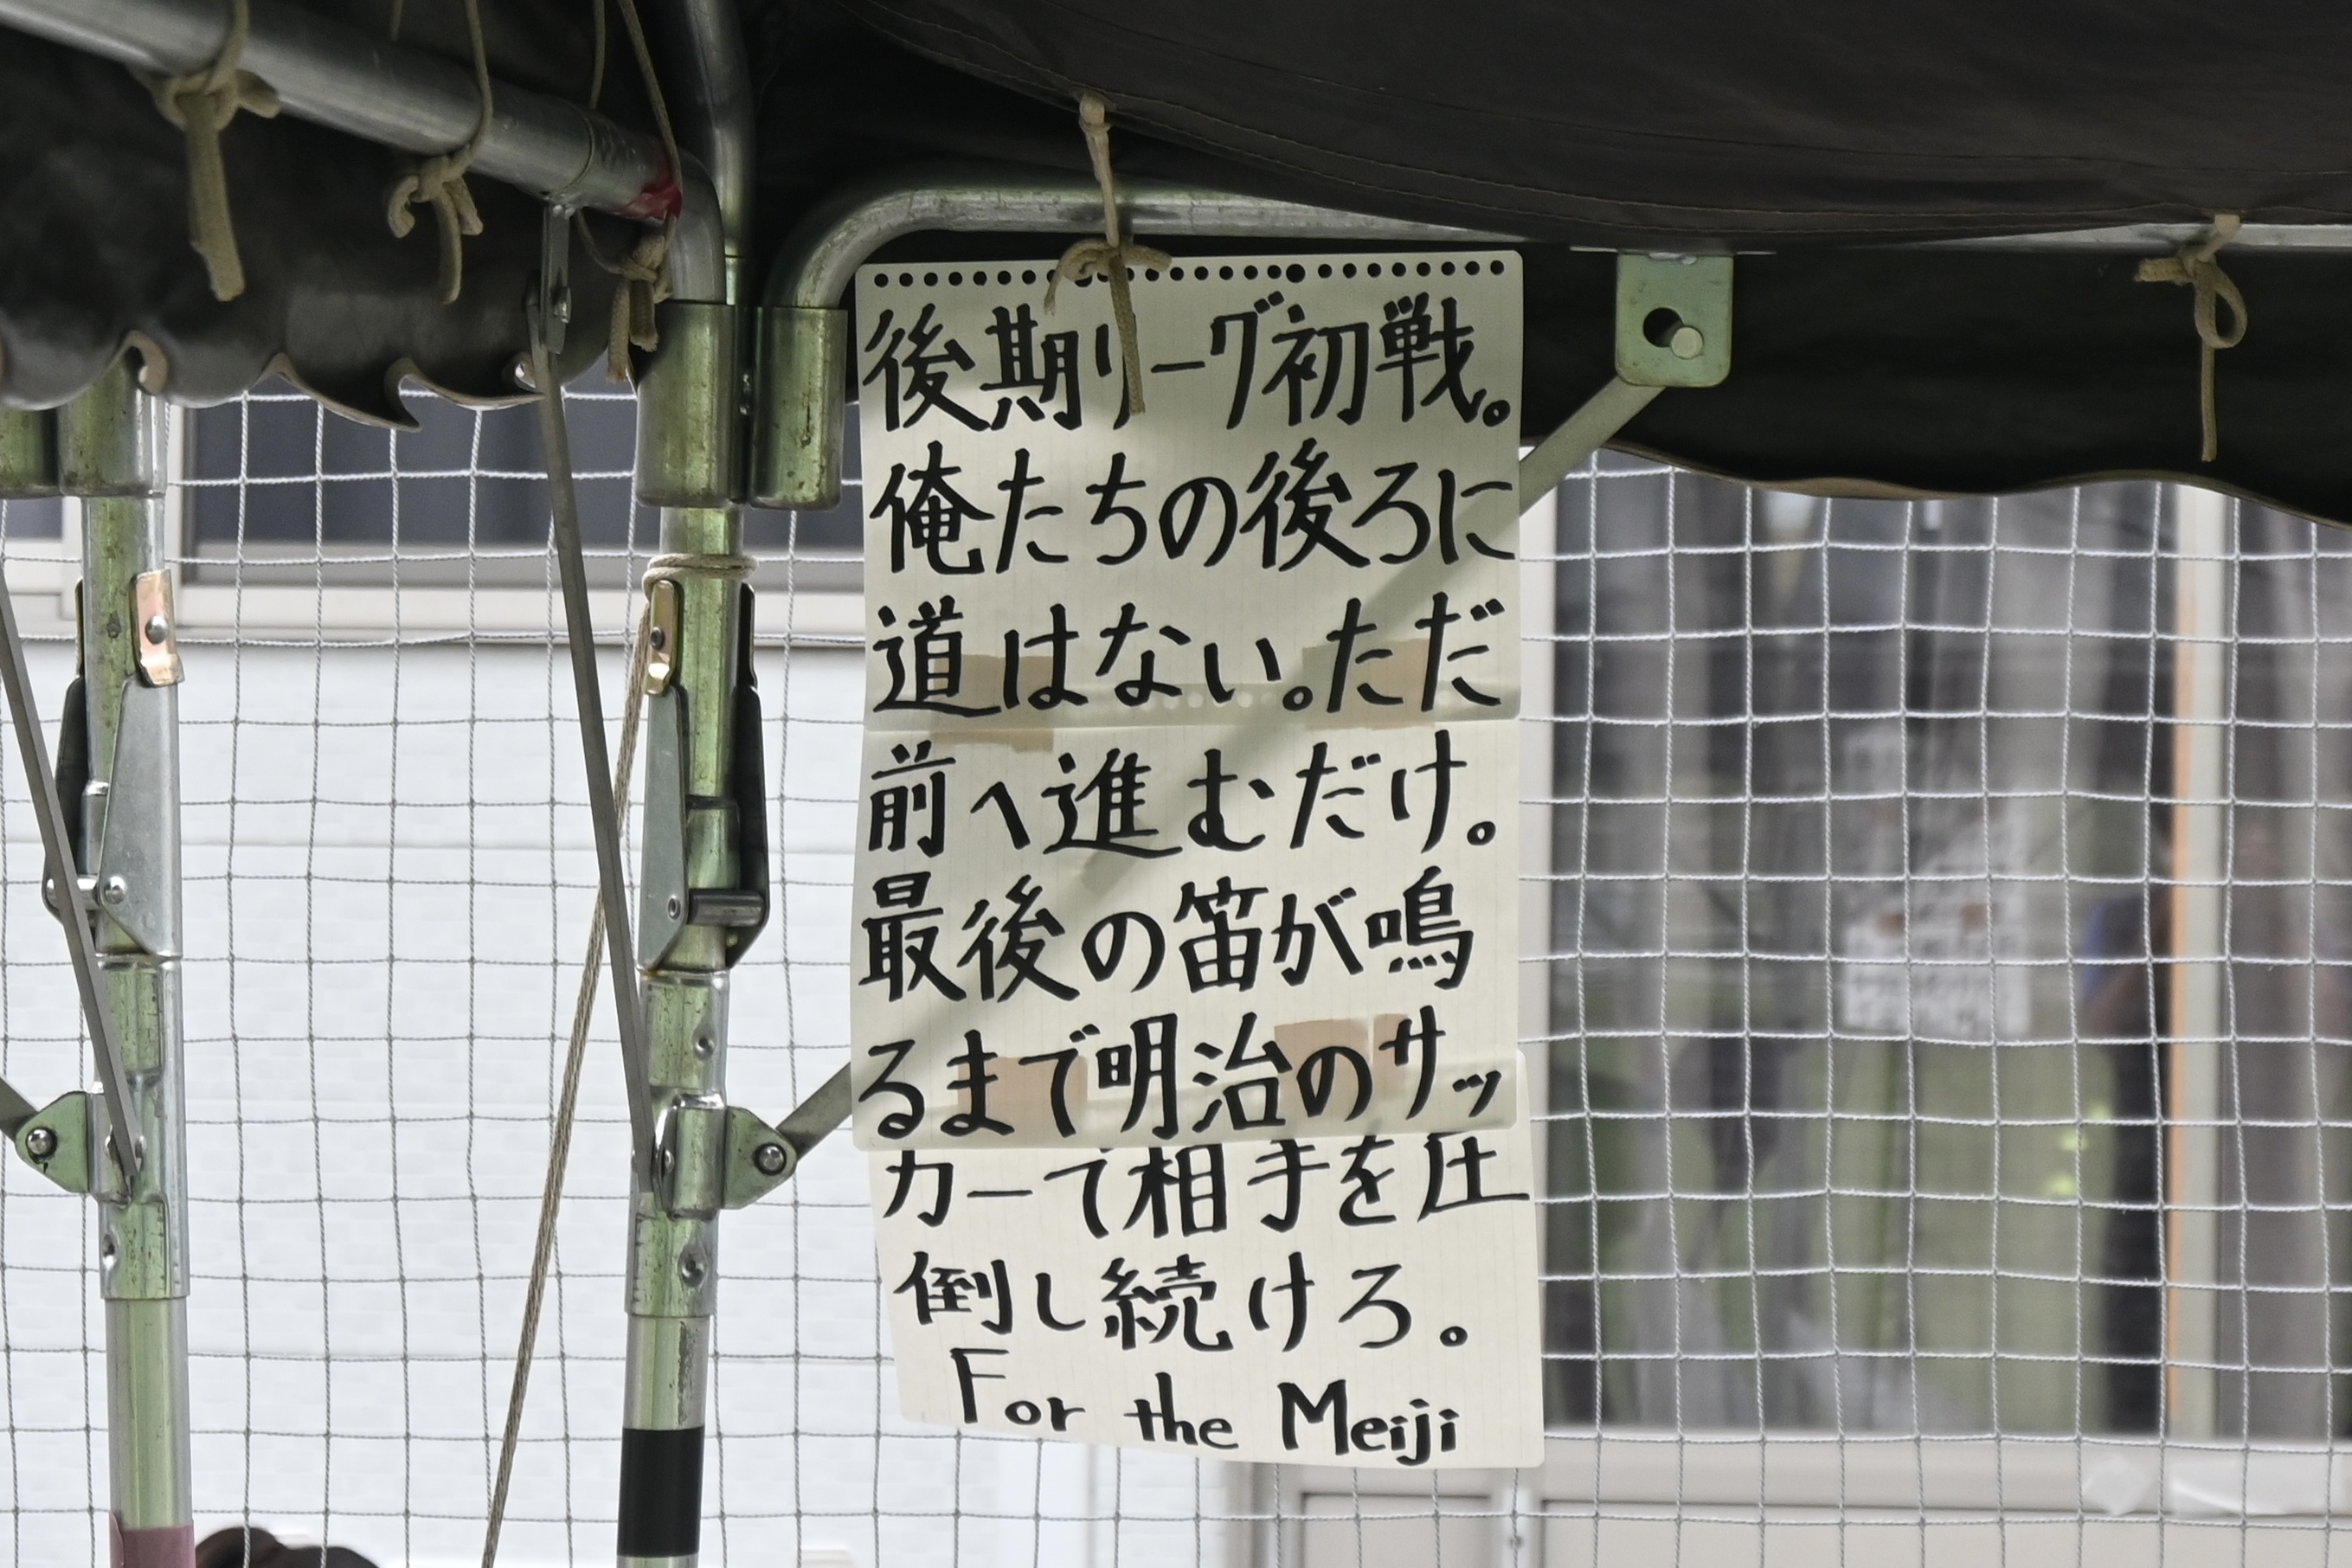 後期リーグ初戦。
俺たちの後ろに
道はない。ただ
前へ進むだけ。
最後の笛が鳴
るまで明治のサッ
カーで相手を圧
倒し続けろ。
For the Meiji